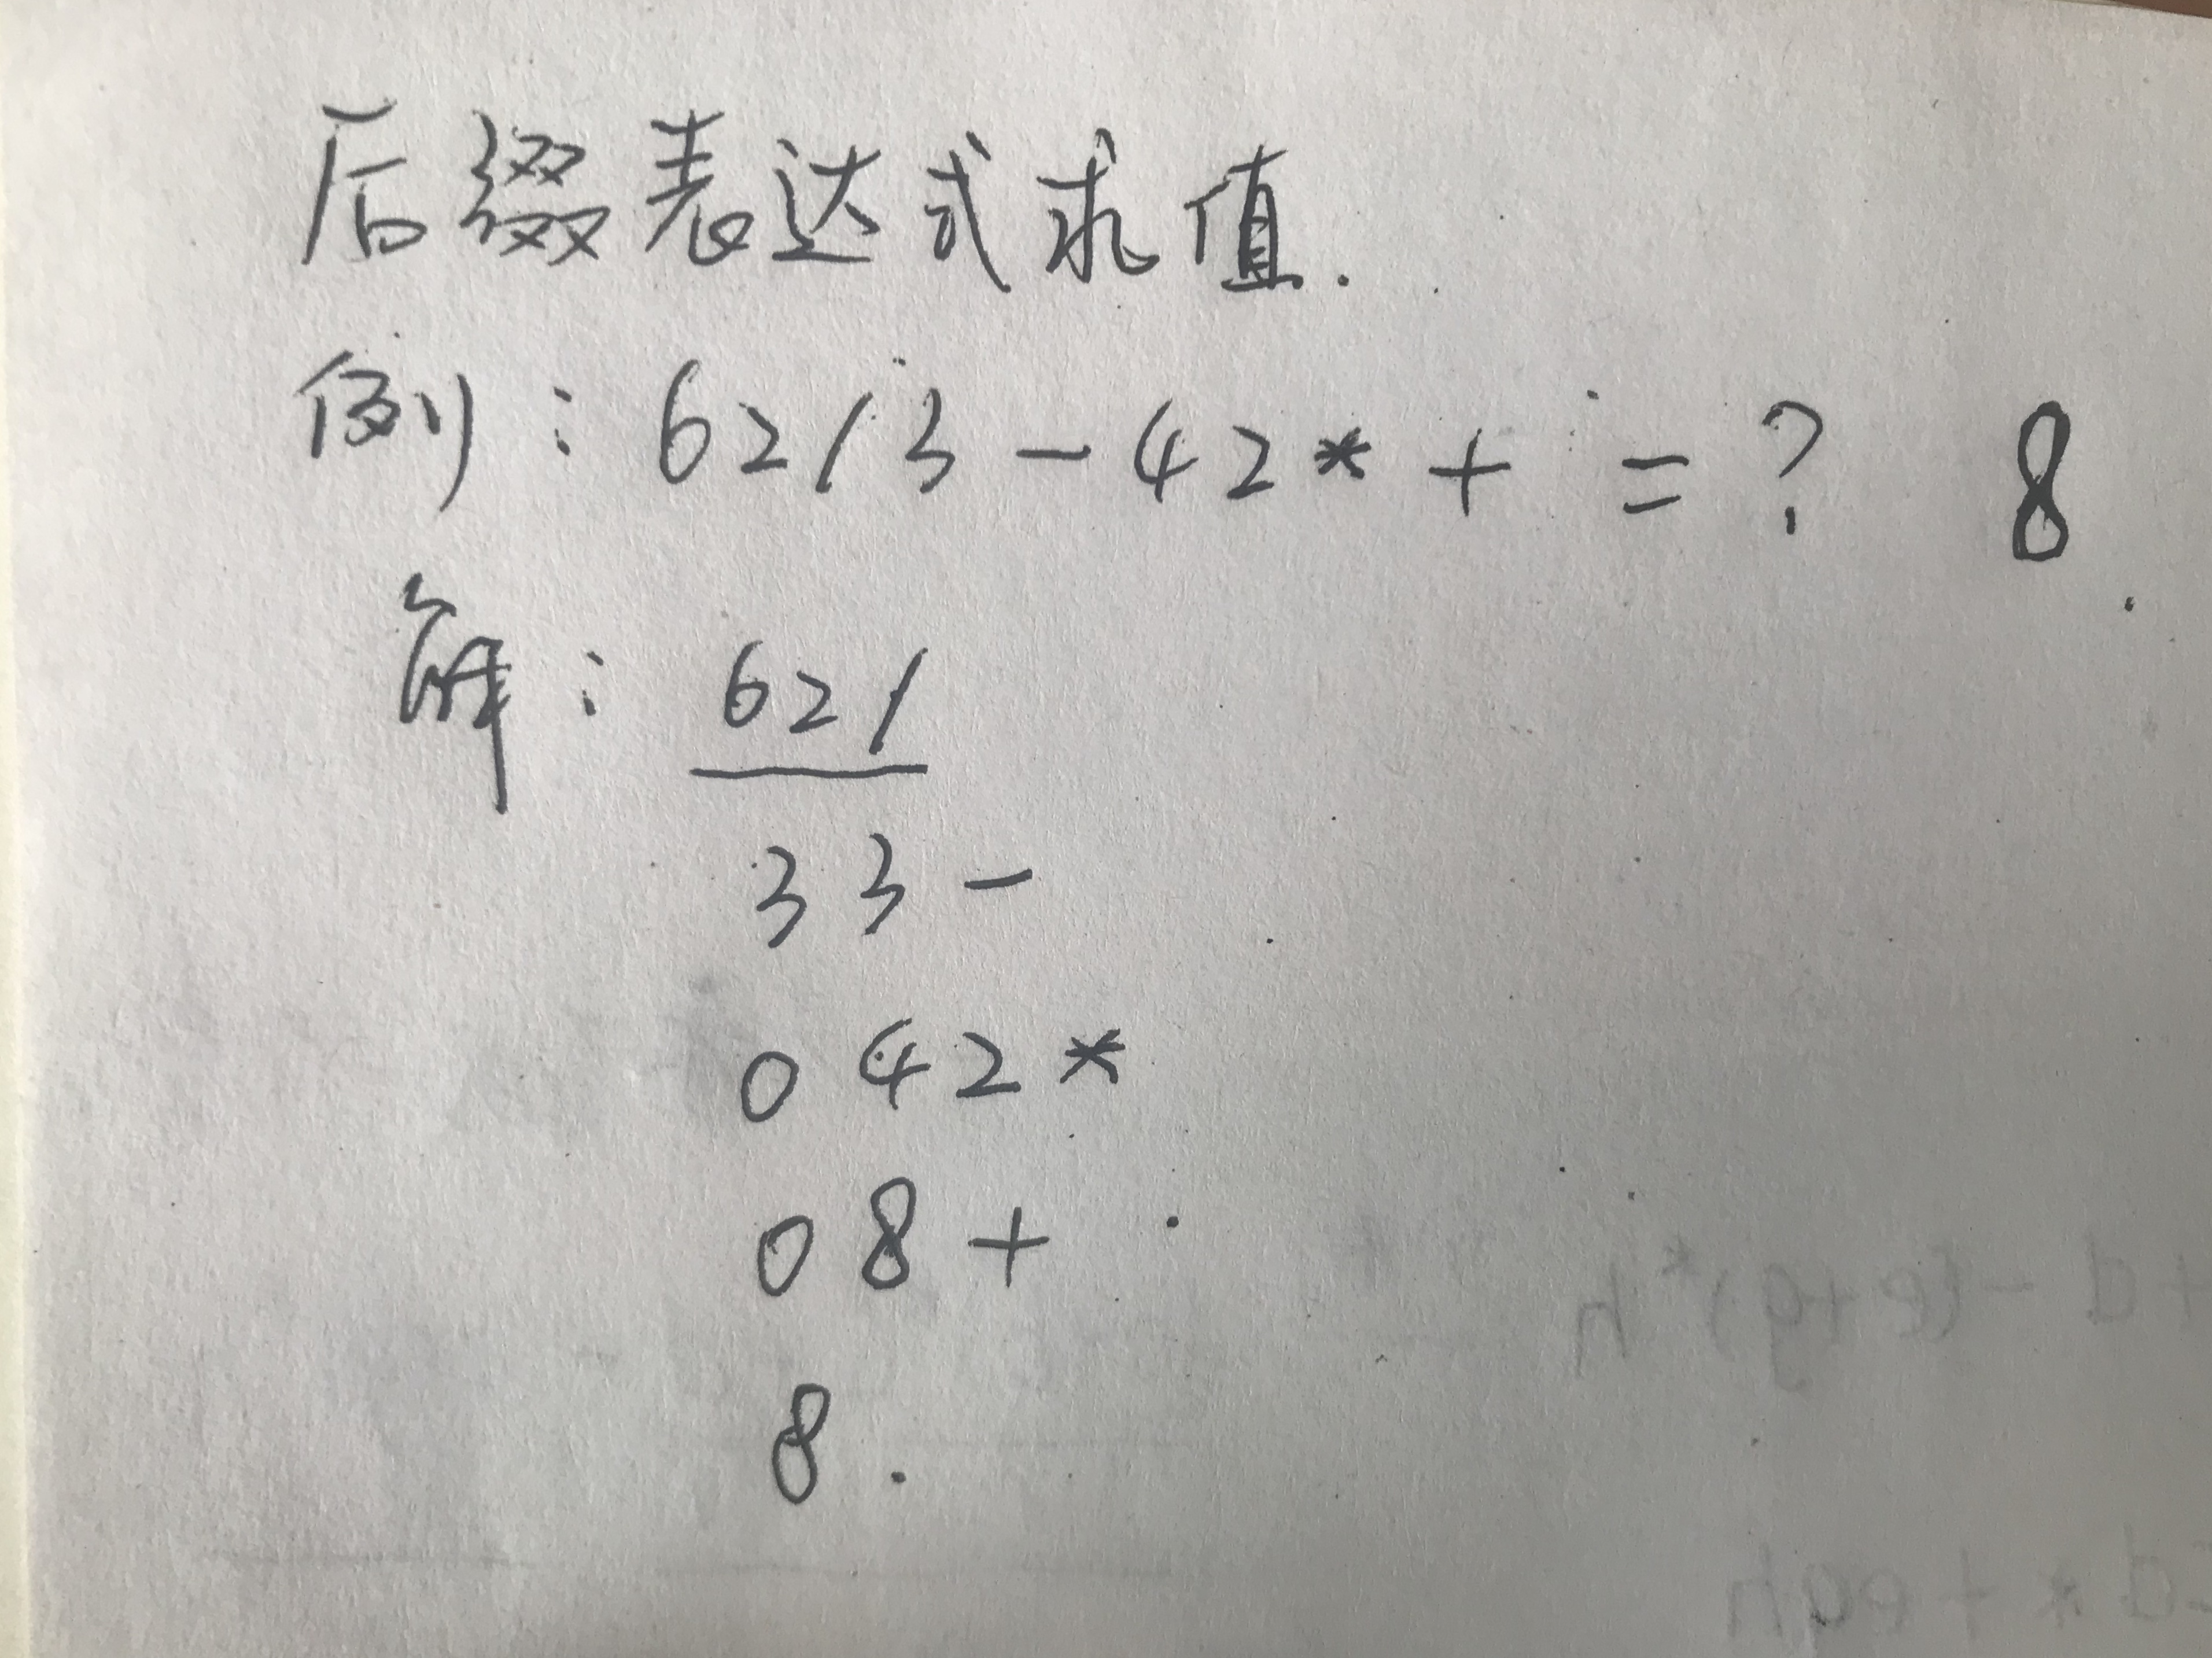 后缀表达式求值.
例: 62/3-42*+ =? 8.
解: 62/
33-
042*
08+
8.